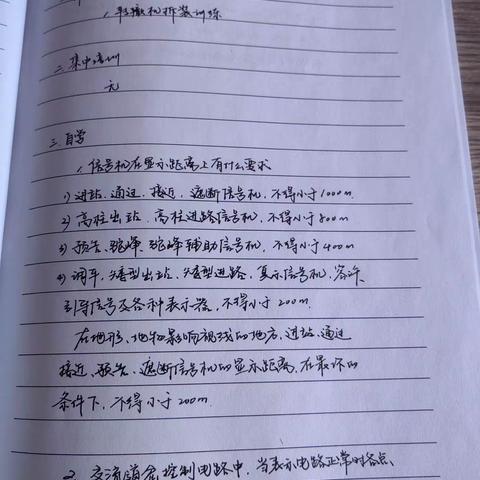 1, 转辙机拆装训练
二. 集中培训
无
三. 自学
1. 信号机在显示距离上有什么要求
1) 进站、通过、接近、遮断信号机, 不得小于1000m.
2) 高柱出站、高柱进路信号机, 不得小于800m
3) 预告、驼峰、驼峰辅助信号机, 不得小于400m
4) 调车、矮型出站、矮型进路、复示信号机, 容许、
引导信号及各种表示器, 不得小于200m.
在地形、地物影响视线的地方, 进站、通过
接近、预告、遮断信号机的显示距离, 在最坏的
条件下, 不得小于200m.
2. 交流道岔控制电路中, 当表示电路正常时各点、